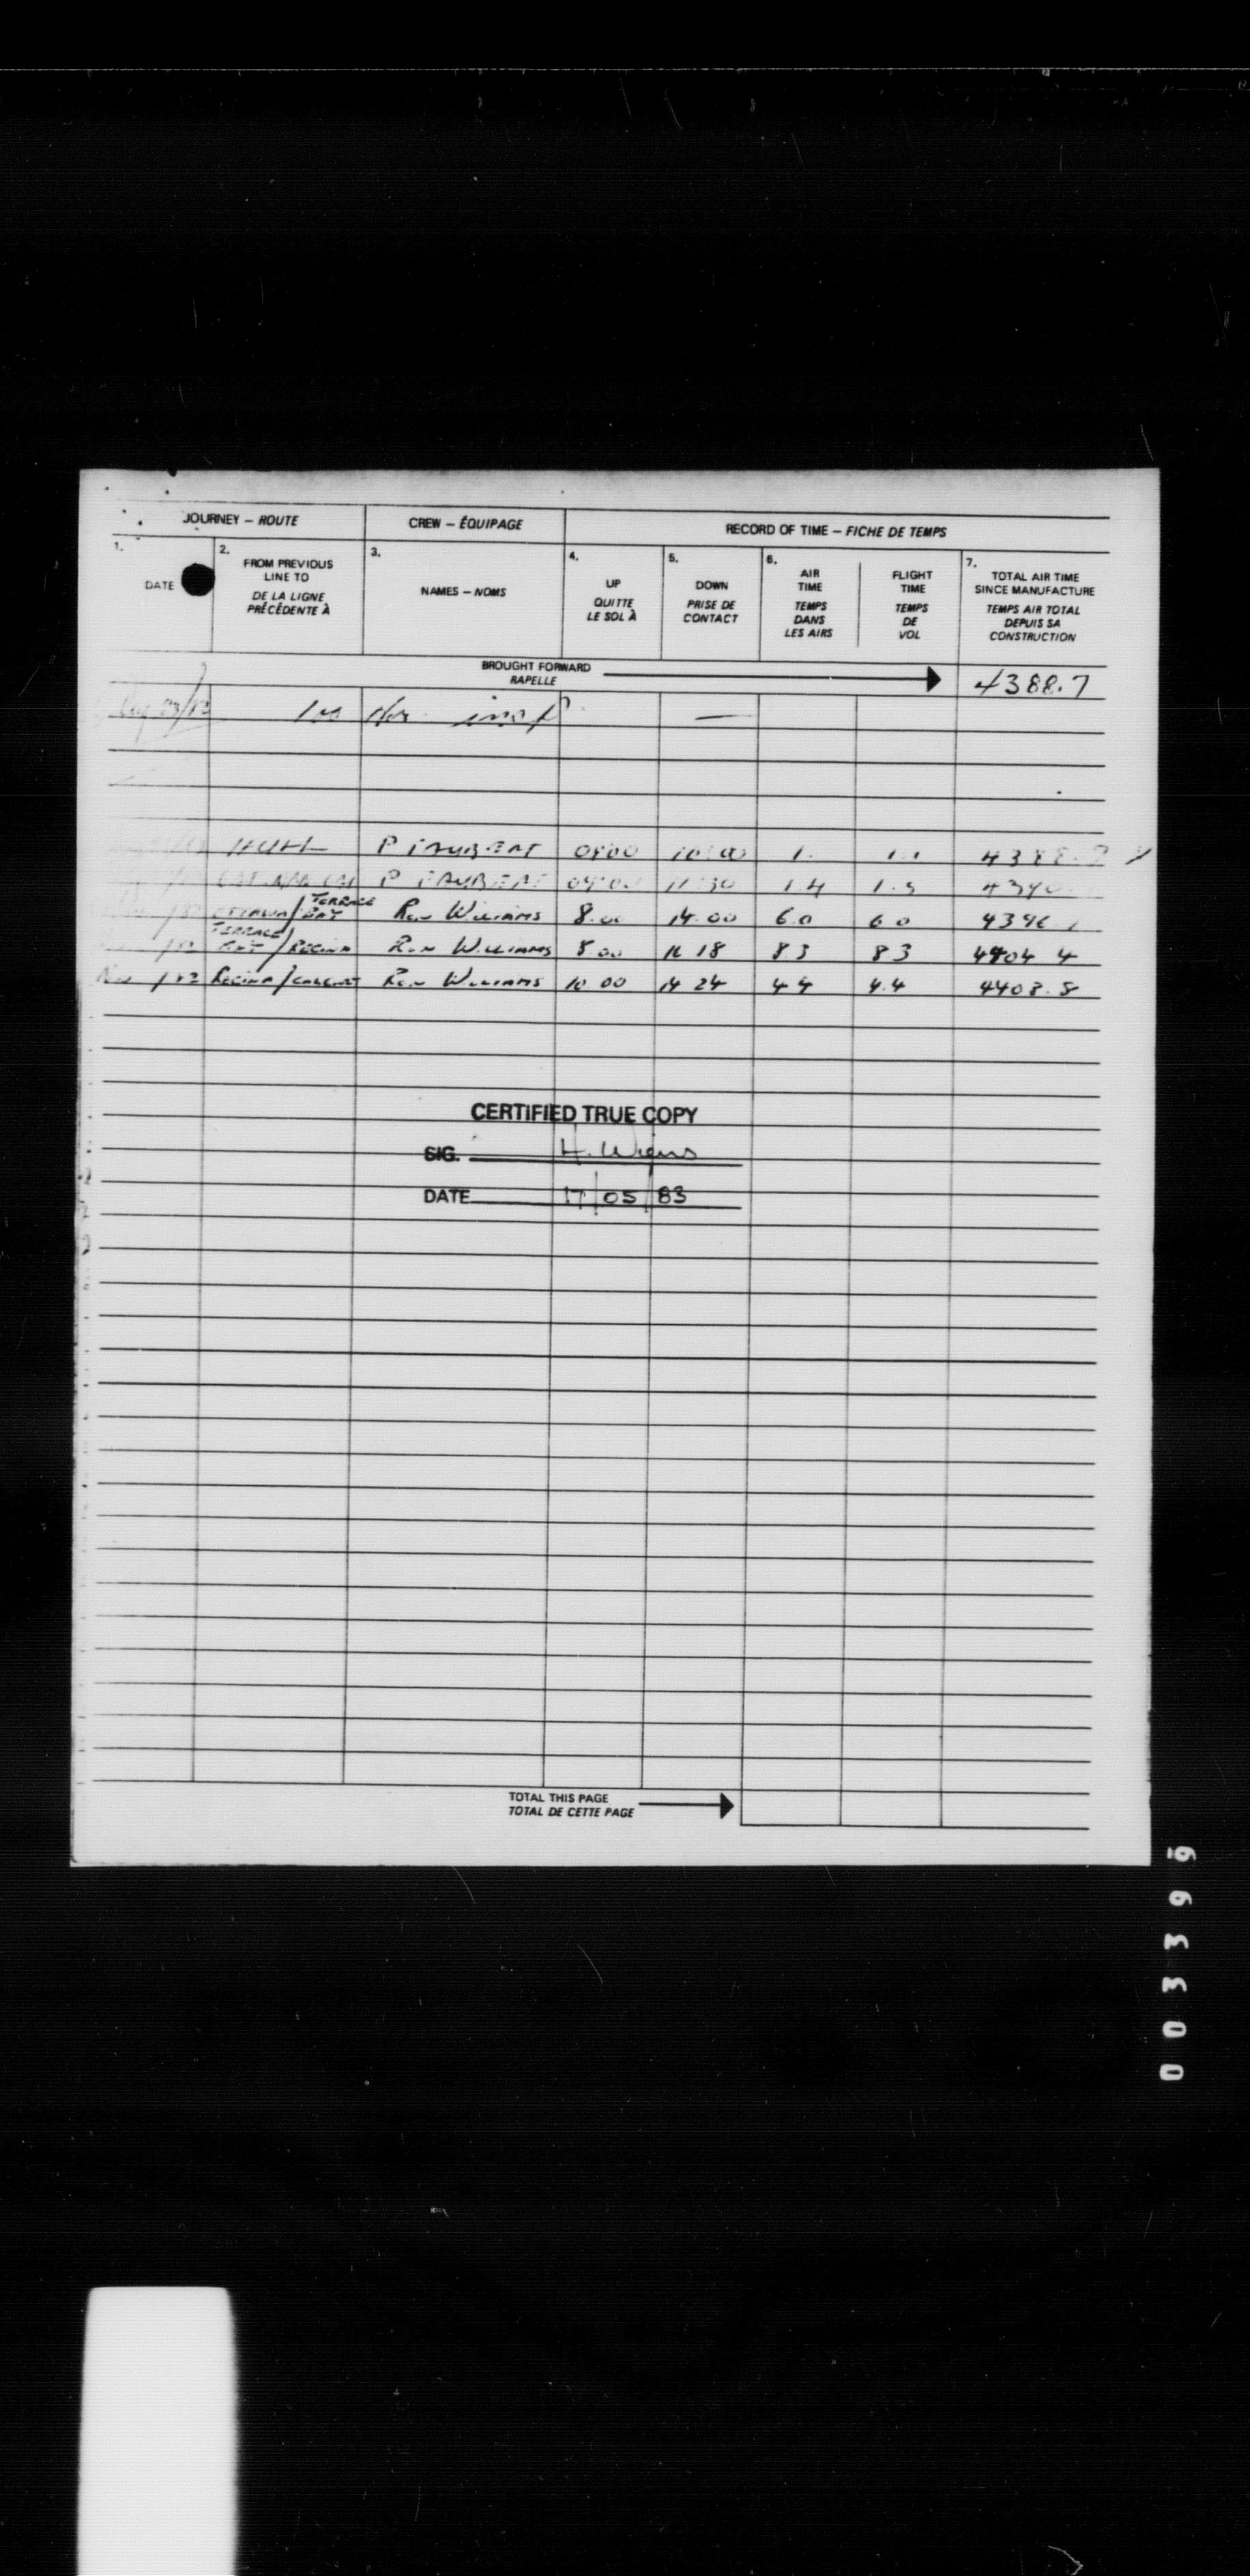 JOURNEY – ROUTE CREW – ÉQUIPAGE RECORD OF TIME – FICHE DE TEMPS
1. DATE
2. FROM PREVIOUS LINE TO
DE LA LIGNE PRÉCÉDENTE À
3. NAMES – NOMS
4. UP
QUITTE LE SOL À
5. DOWN
PRISE DE CONTACT
6. AIR TIME
TEMPS DANS LES AIRS
FLIGHT TIME
TEMPS DE VOL
7. TOTAL AIR TIME SINCE MANUFACTURE
TEMPS AIR TOTAL DEPUIS SA CONSTRUCTION
BROUGHT FORWARD
RAPELLE
4388.7
100 Hr. insp —
HULL P 0900 10:00 1.
P 11:30 1.4 1.5
OTTAWA/TERRACE BAY Ron Williams 8.00 14.00 6.0 6.0 4396.1
TERRACE BAY/REGINA Ron Williams 8.00 16 18 8.3 8.3 4404 4
REGINA/CALGARY Ron Williams 10 00 14 24 4 4 4.4 4408.8
CERTIFIED TRUE COPY
SIG. H. Wiens
DATE 17 05 83
TOTAL THIS PAGE
TOTAL DE CETTE PAGE
003399